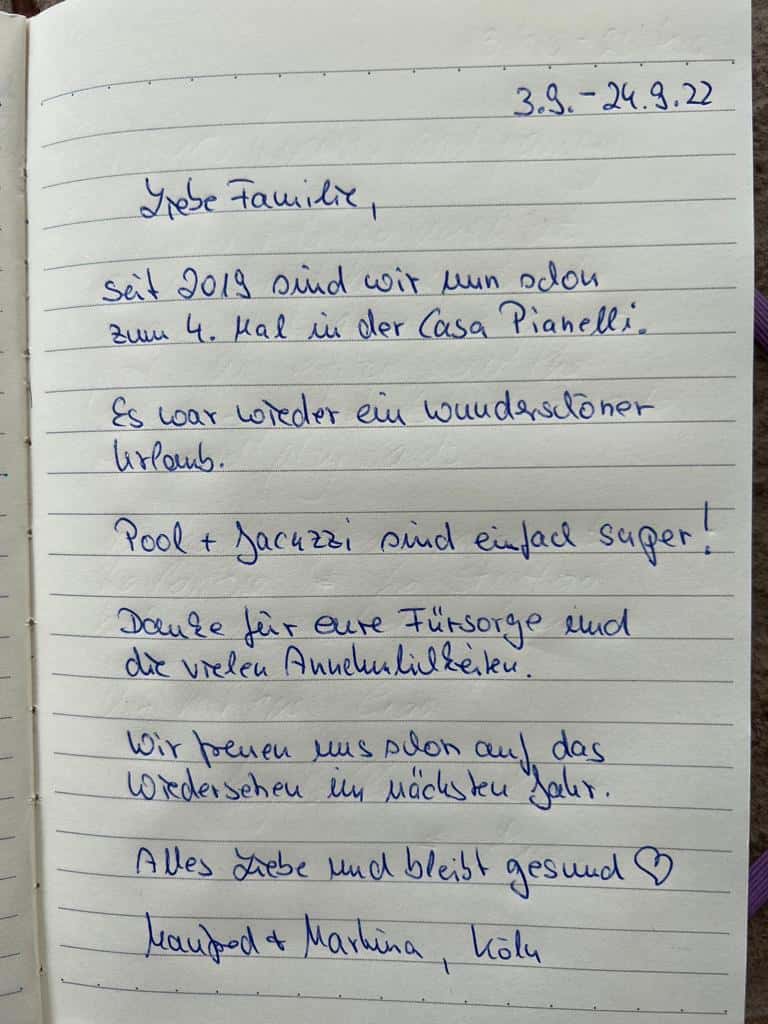 3.9. - 24.9.22
Liebe Familie,
seit 2019 sind wir nun schon
zum 4. Mal in der Casa Pianelli.
Es war wieder ein wunderschöner
Urlaub.
Pool + Jacuzzi sind einfach super!
Danke für eure Fürsorge und
die vielen Annehmlichkeiten.
Wir freuen uns schon auf das
Wiedersehen im nächsten Jahr.
Alles Liebe und bleibt gesund ♡
Manfred + Martina, Köln